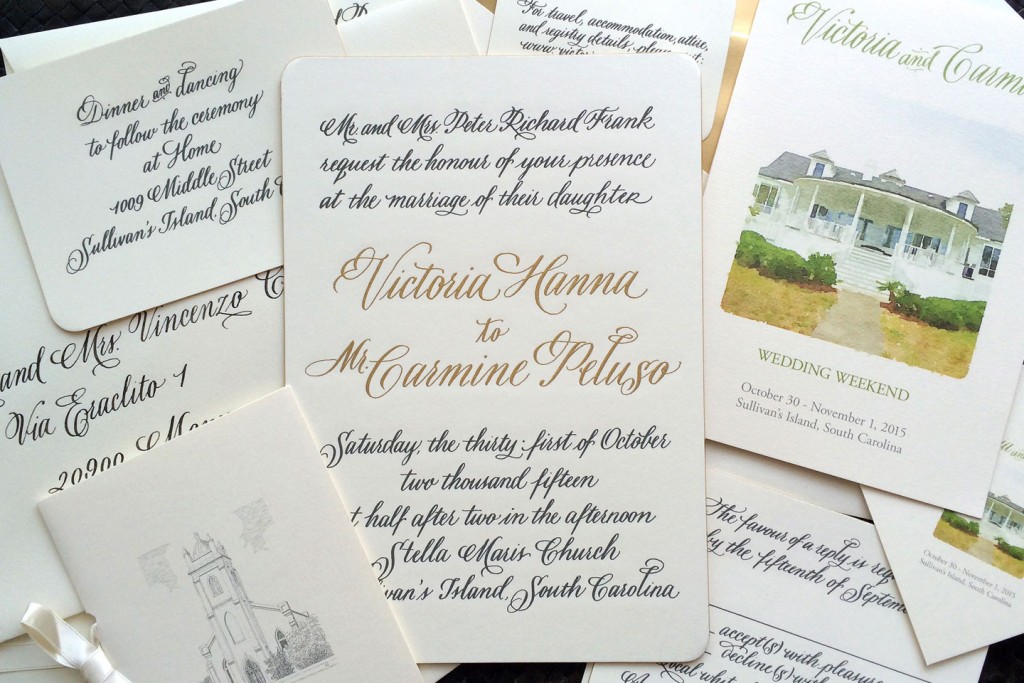 Dinner and dancing
to follow the ceremony
at Home
1009 Middle Street
Sullivan's Island, South
For travel, accommodation, attire,
and registry details, please
Mr. and Mrs. Peter Richard Frank
request the honour of your presence
at the marriage of their daughter
Victoria Hanna
to
Mr. Carmine Peluso
Saturday, the thirty-first of October
two thousand fifteen
half after two in the afternoon
Stella Maris Church
Island, South Carolina
Victoria and
WEDDING WEEKEND
October 30 - November 1, 2015
Sullivan's Island, South Carolina
and Mrs. Vincenzo
Via Eraclito 1
20900
October 30 - November 1, 2015
Sullivan's Island, South Carolina
The favour of a reply is
by the fifteenth of
accept(s) with pleasure
decline(s) with
Local